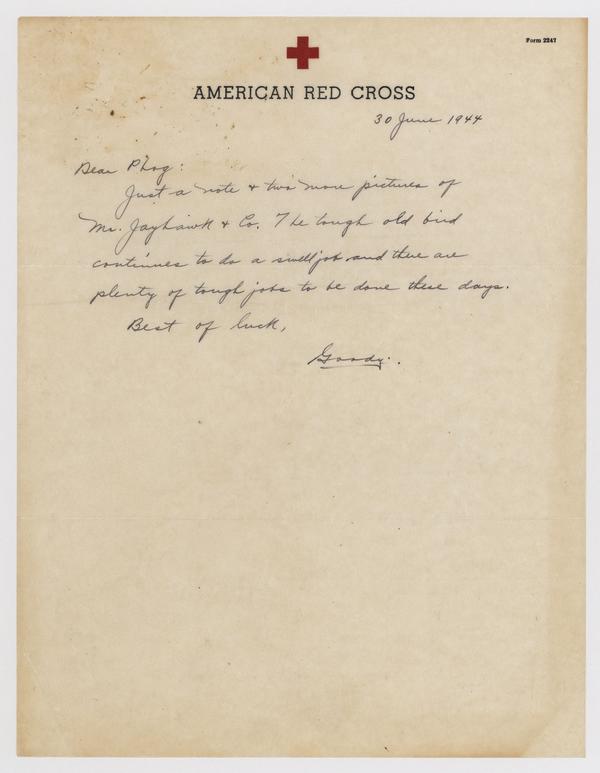 Form 2247
AMERICAN RED CROSS
30 June 1944
Dear Phog:
Just a note & two more pictures of
Mr. Jayhawk & Co. The tough old bird
continues to do a swell job and there are
plenty of tough jobs to be done these days.
Best of luck,
Goody.